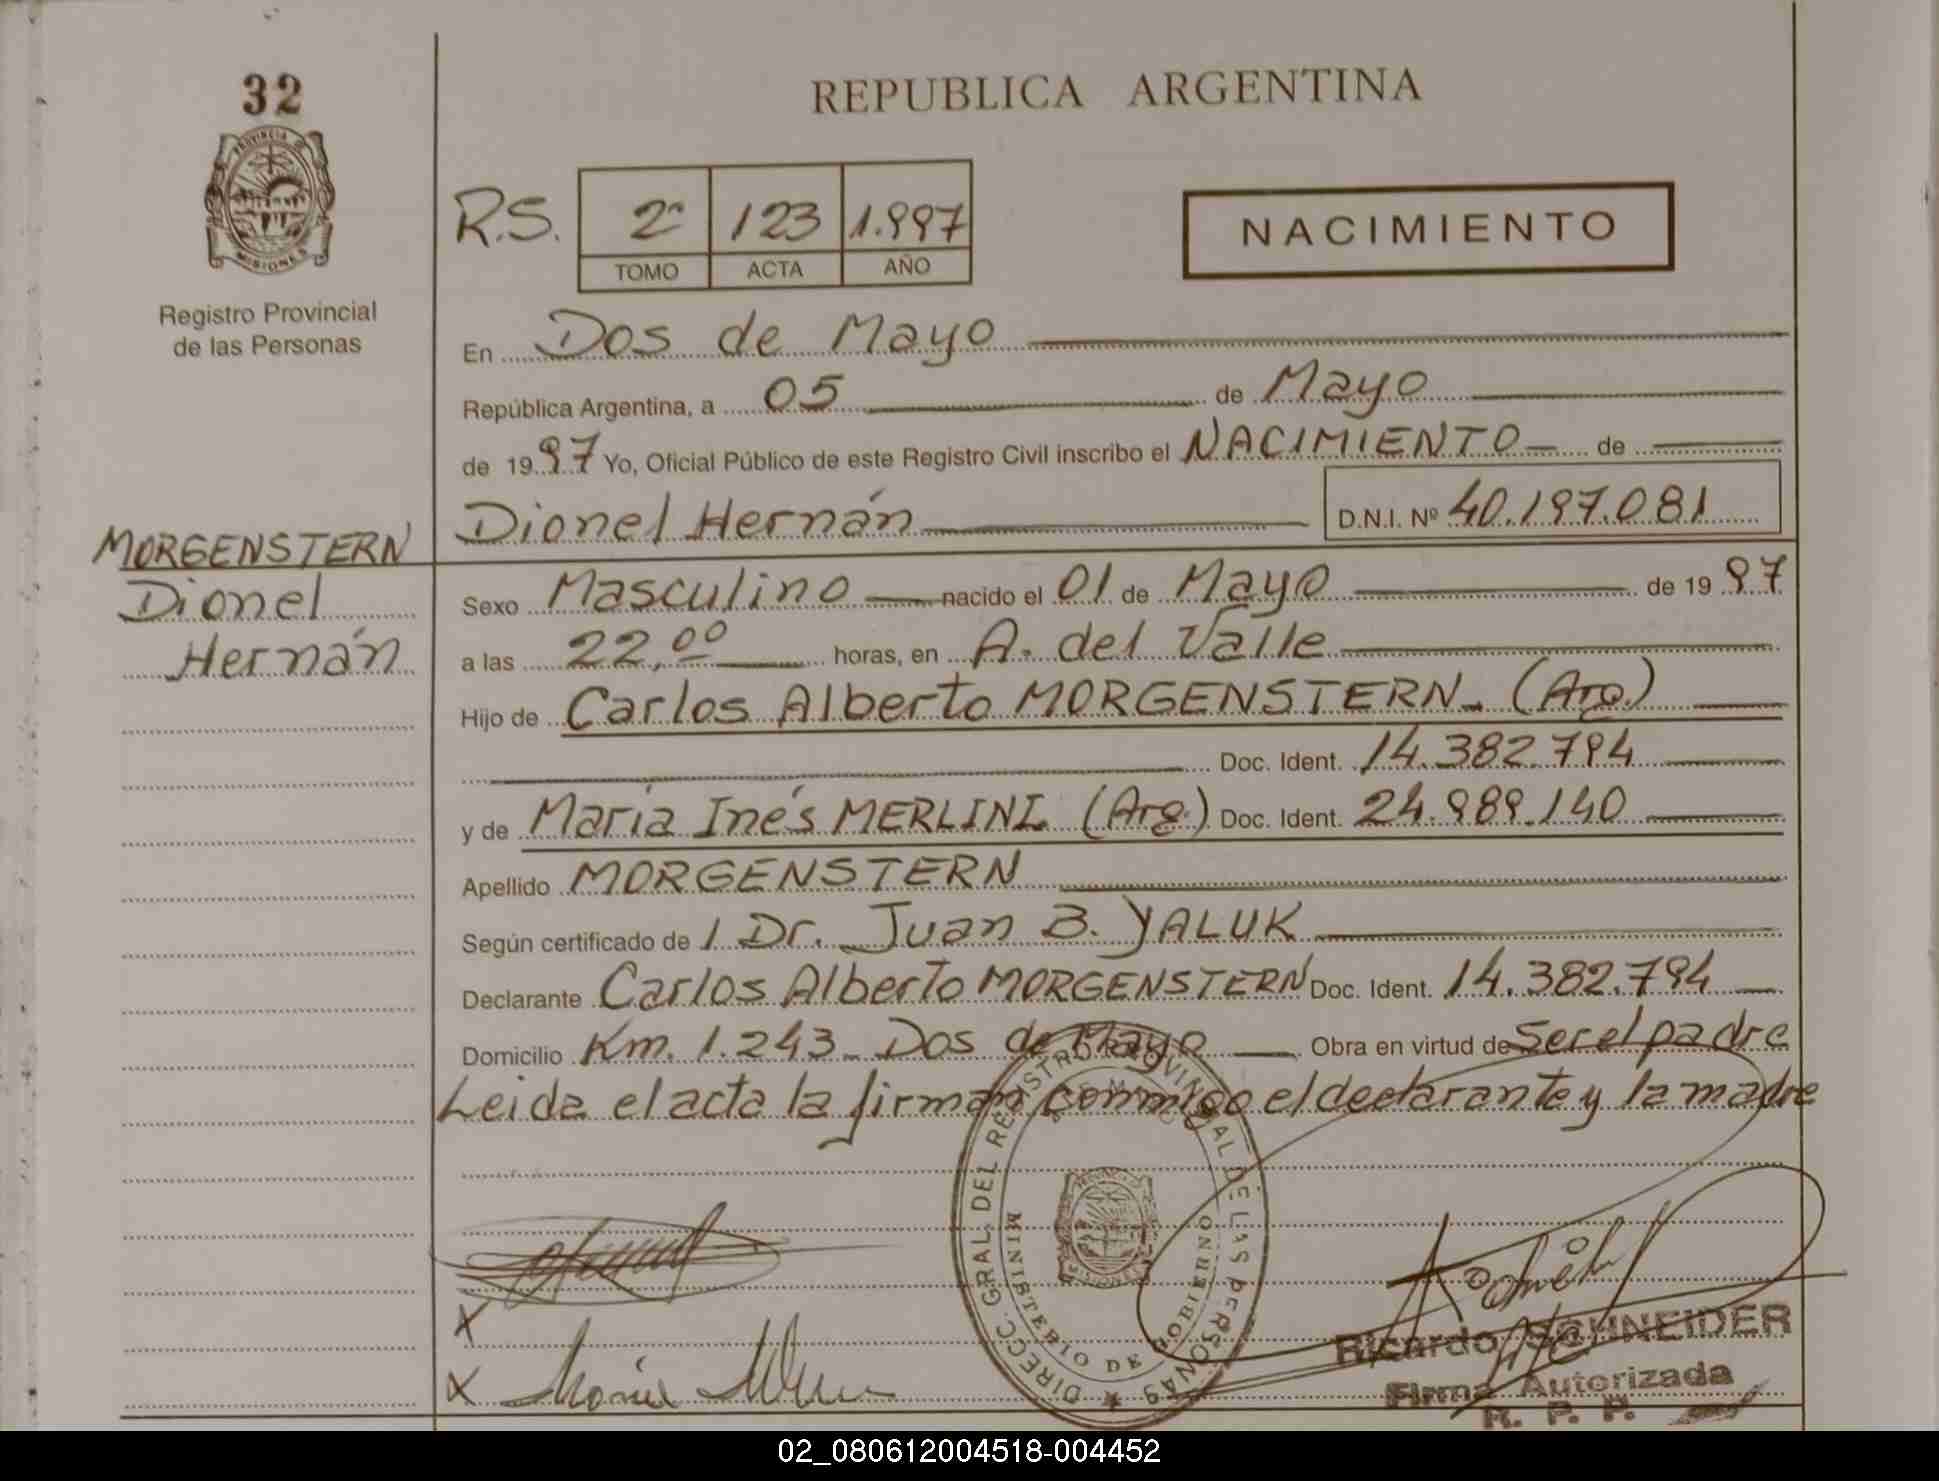 32
PROVINCIA DE
MISIONES
Registro Provincial
de las Personas
MORGENSTERN
Dionel
Hernán
REPUBLICA ARGENTINA
R.S. 2º 123 1.997
TOMO ACTA AÑO
NACIMIENTO
En Dos de Mayo
República Argentina, a 05 de Mayo
de 1997 Yo, Oficial Público de este Registro Civil inscribo el NACIMIENTO de
Dionel Hernán D.N.I. Nº 40.197.081
Sexo Masculino nacido el 01 de Mayo de 1997
a las 22,00 horas, en A. del Valle
Hijo de Carlos Alberto MORGENSTERN. (Arg.)
Doc. Ident. 14.382.794
y de María Inés MERLINI (Arg.) Doc. Ident. 24.989.140
Apellido MORGENSTERN
Según certificado de / Dr. Juan B. YALUK
Declarante Carlos Alberto MORGENSTERN Doc. Ident. 14.382.794
Domicilio Km. 1.243 - Dos de Mayo Obra en virtud de Ser el padre
Leida el acta la firman conmigo el declarante y la madre
DIRECC. GRAL. DEL REGISTRO PROVINCIAL DE LAS PERSONAS
MINISTERIO DE GOBIERNO
MISIONES
X
X María
Ricardo SCHNEIDER
Firma Autorizada
R. P. P.
02_080612004518-004452